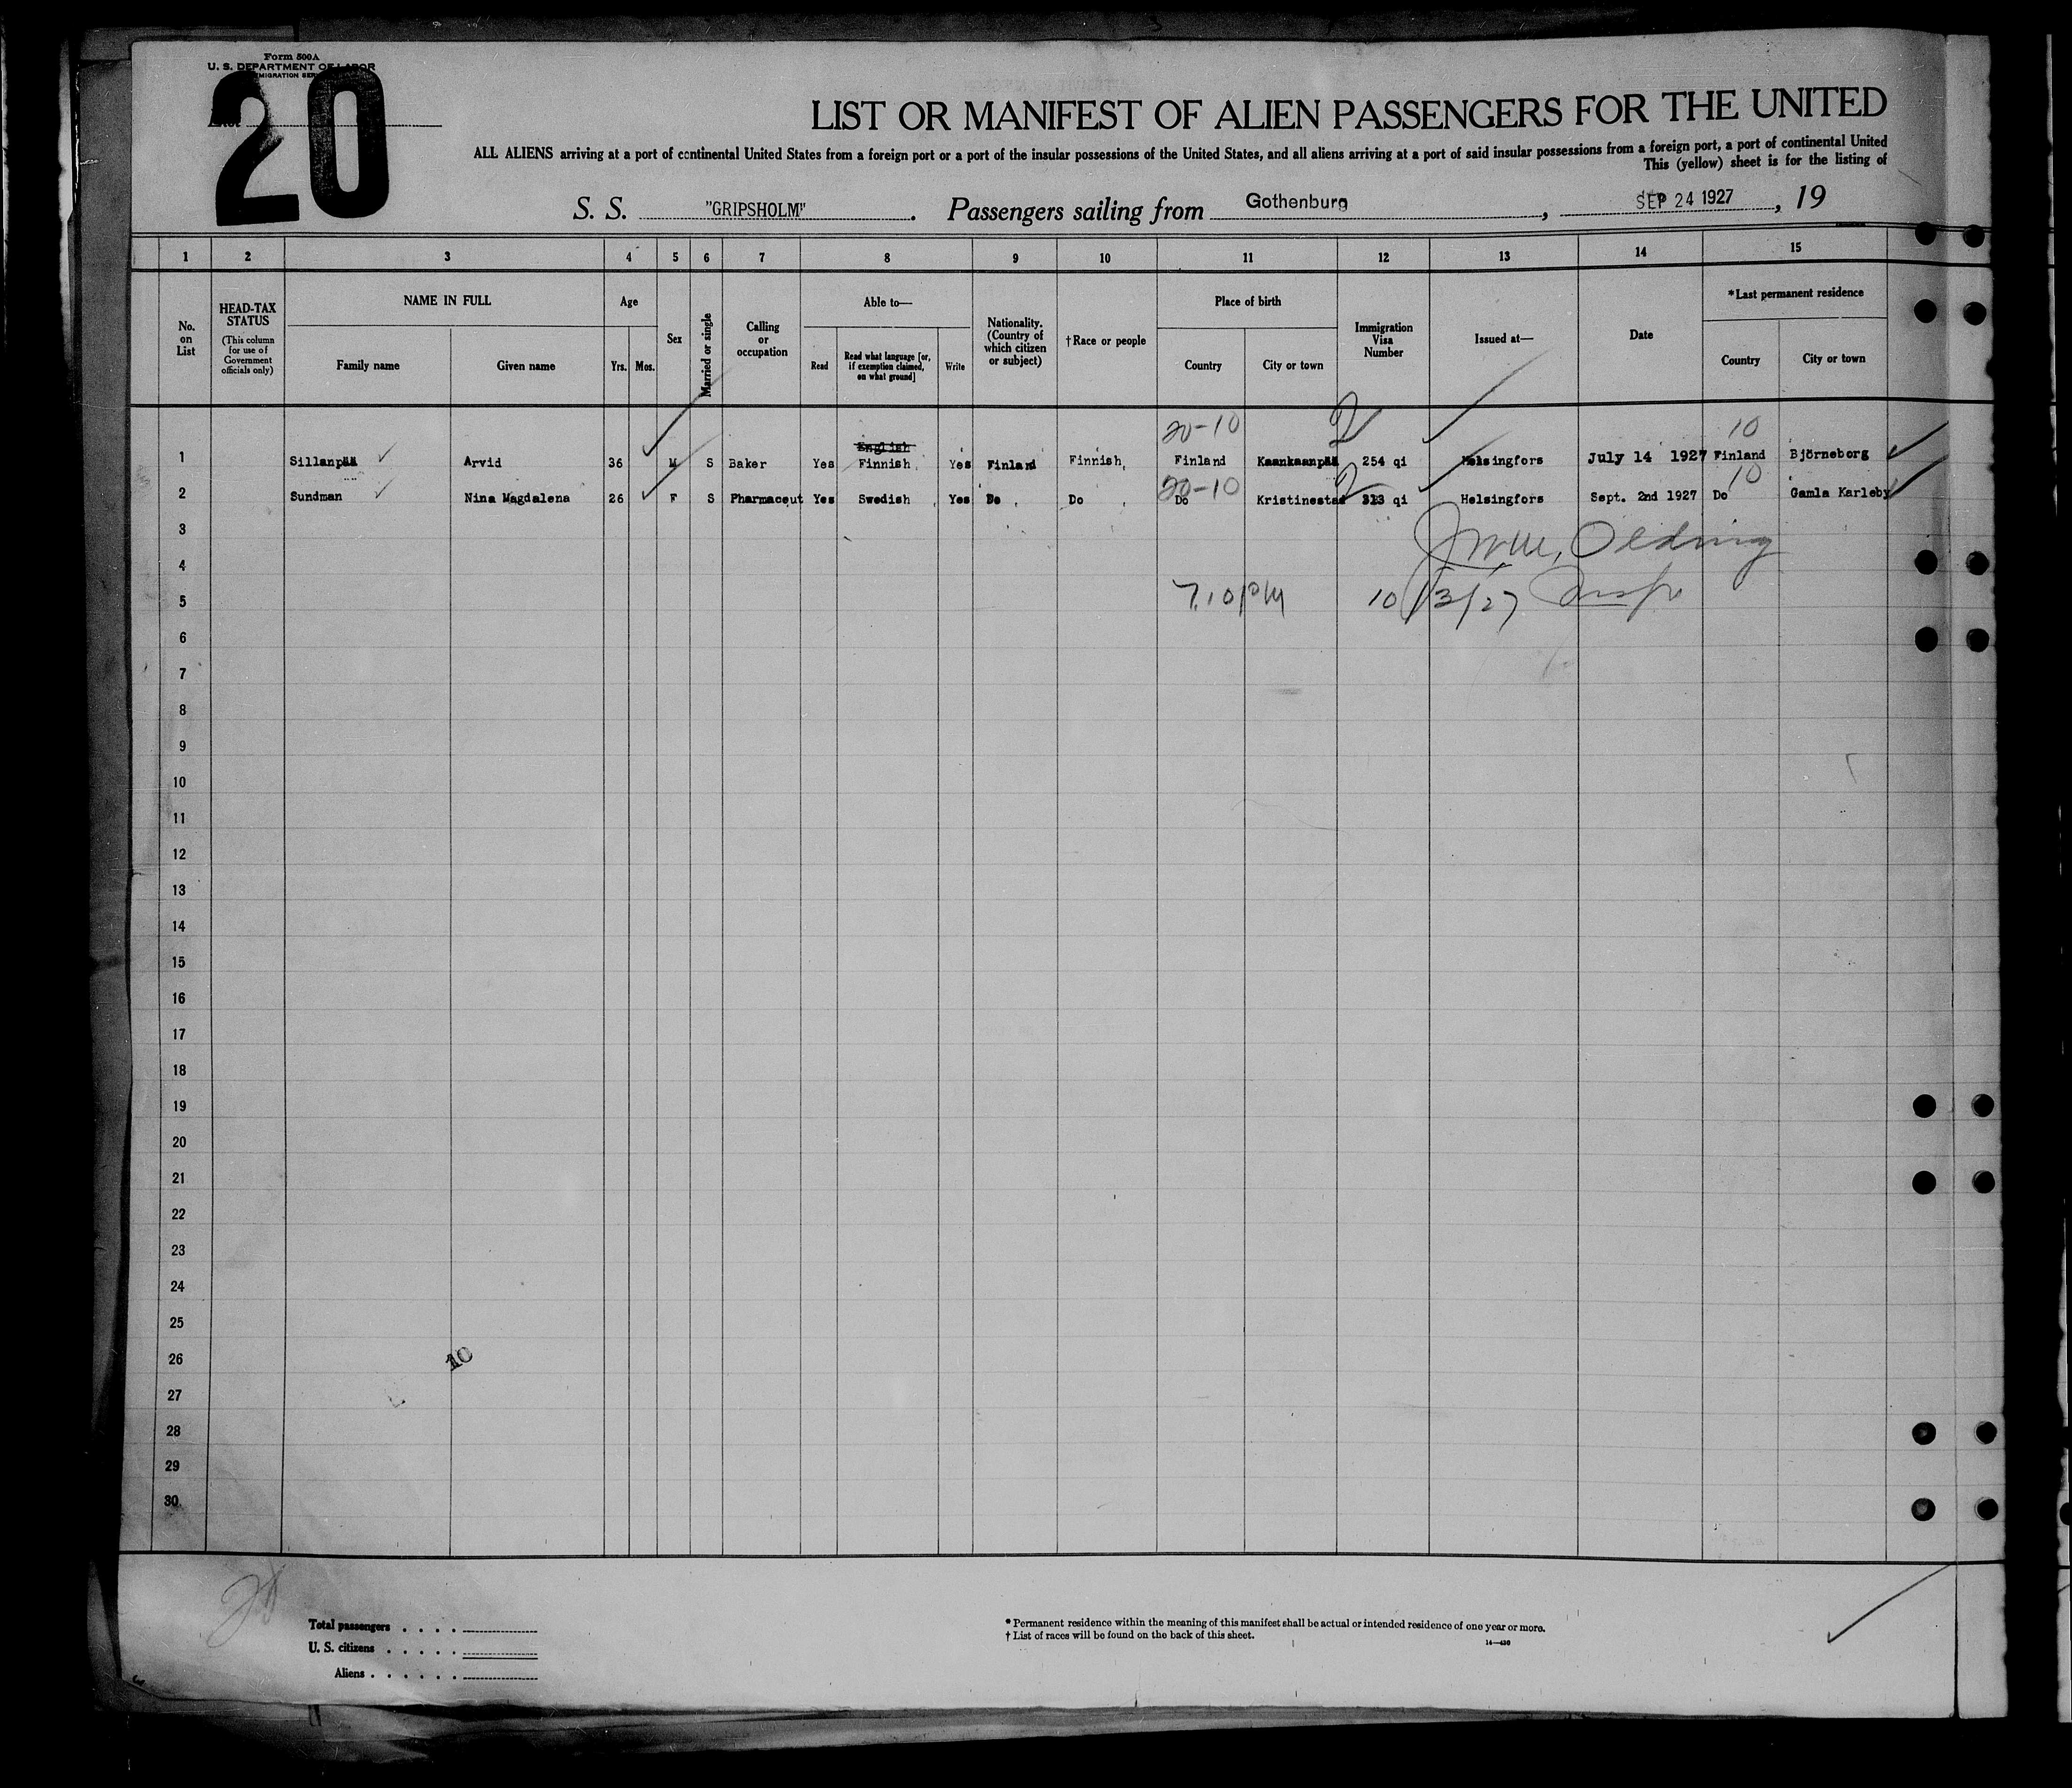 Form 500A
U. S. DEPARTMENT OF LABOR
20
LIST OR MANIFEST OF ALIEN PASSENGERS FOR THE UNITED
ALL ALIENS arriving at a port of continental United States from a foreign port or a port of the insular possessions of the United States, and all aliens arriving at a port of said insular possessions from a foreign port, a port of continental United
This (yellow) sheet is for the listing of
S. S. "GRIPSHOLM". Passengers sailing from Gothenburg, SEP 24 1927, 19
1 2 3 4 5 6 7 8 9 10 11 12 13 14 15
No. on List
HEAD-TAX STATUS (This column for use of Government officials only)
NAME IN FULL
Family name
Given name
Age
Yrs. Mos.
Sex
Married or single
Calling or occupation
Able to—
Read
Read what language [or, if exemption claimed, on what ground]
Write
Nationality. (Country of which citizen or subject)
†Race or people
Place of birth
Country
City or town
Immigration Visa Number
Issued at—
Date
*Last permanent residence
Country
City or town
20-10 2 10
English
1 Sillanpää Arvid 36 M S Baker Yes Finnish Yes Finland Finnish Finland Kaankaanpää 254 qi Helsingfors July 14 1927 Finland Björneborg
20-10 2 10
2 Sundman Nina Magdalena 26 F S Pharmaceut Yes Swedish Yes Do Do Do Kristinestad 313 qi Helsingfors Sept. 2nd 1927 Do Gamla Karleby
3
4
5 7.10 PM 10/3/27 Insp
6
7
8
9
10
11
12
13
14
15
16
17
18
19
20
21
22
23
24
25
26 10
27
28
29
30
Total passengers
U. S. citizens
Aliens
* Permanent residence within the meaning of this manifest shall be actual or intended residence of one year or more.
† List of races will be found on the back of this sheet.
14—430